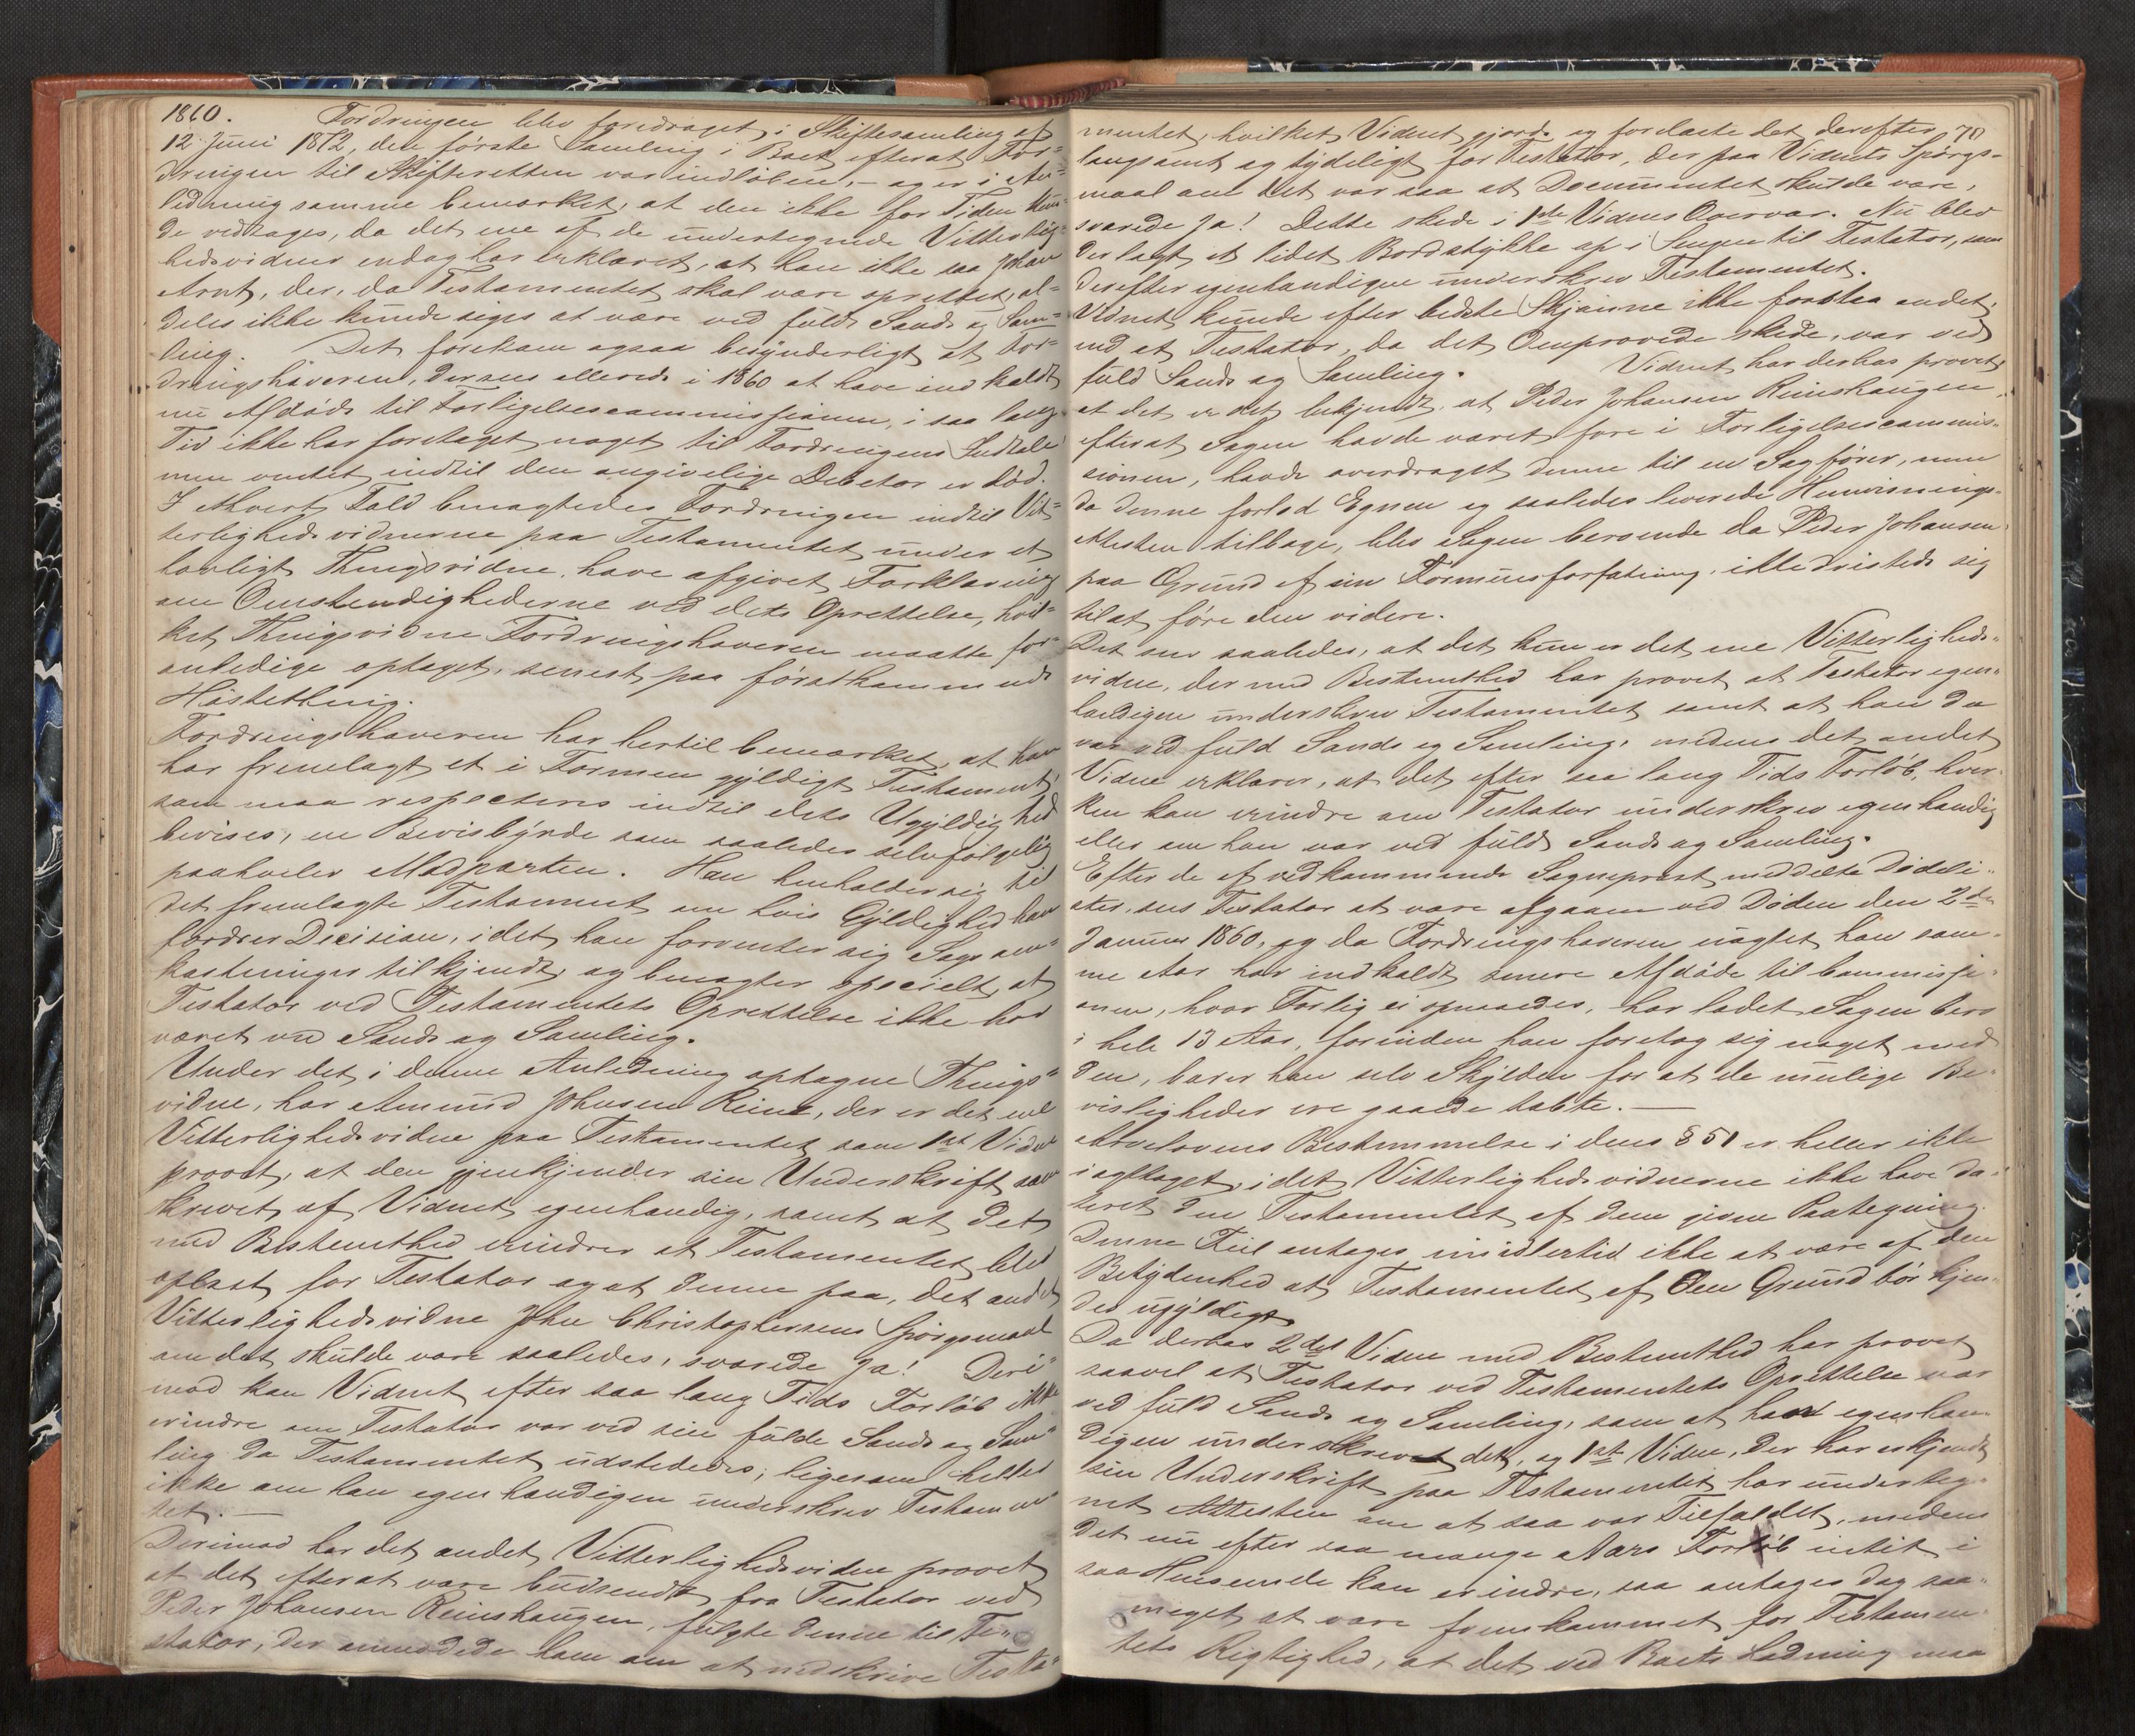 1860. Fordringen blev foredraget i Skiftesamling af
12 Juni 1872, den første Samling i Boet efterat For-
dringen til Skifteretten var indløben, - og er i An-
ledning samme bemærket, at den ikke for Tiden kun-
de vedtages, da det ene af de undertegnede Vitterlig-
hedsvidner endog har erklæret, at han ikke saa Johan
Arnt, der, da Testamentet skal være oprettet, al-
deles ikke kunde siges at være ved fuld Sands og Sam-
ling. Det forekom ogsaa besynderligt at For-
dringshaveren, der sees allerede i 1860 at have indkaldt
nu Afdøde til Forligelsescommissionen, i saa lang
Tid ikke har foretaget noget til Fordringens Indtale
men ventet indtil den angivelige Debetor er død.
I ethvert Fald benægtedes Fordringen indtil Vit-
terlighedsvidnerne paa Testamentet under et
lovligt Thingsvidne have afgivet Forklaring
om Omstændighederne ved dets Oprettelse, hvil-
ket Thingsvidne Fordringshaveren maatte for-
anledige optaget, senest paa førstkommende
Høstething.
Fordringshaveren har hertil bemærket, at han
har fremlagt et i Formen gyldigt Testament,
som maa respecteres indtil dets Ugyldighed
bevises, en Bevisbyrde som saaledes selvfølgelig
paahviler Modparten. Han henholder sig til
det fremlagte Testament om hvis Gyldighed han
fordrer Decision, idet han forventer sig Sags om-
kostninger tilkjendt, og benægter specielt, at
Testator ved Testamentets Oprettelse ikke har
været ved Sands og Samling.
Under det i denne Anledning optagne Things-
vidne, har Amund Johnsen Reine, der er det ene
Vitterlighedsvidne paa Testamentet som 1ste Vidne
provet, at den gjenkjender sin Underskrift som
skrevet af Vidnet egenhændig, samt at det
med Bestemthed erindrer at Testamentet blev
oplæst for Testator og at denne paa, det andet
Vitterlighedsvidne John Christophersens Spørgsmaal
om det skulde være saaledes, svarede Ja! Deri-
mod kan Vidnet efter saa lang Tids Forløb ikke
erindre om Testator var ved sin fulde Sands og Sam-
ling da Testamentet udstededes, ligesom heller
ikke om han egenhændigen underskrev Testamen-
tet. -
Derimod har det andet Vitterlighedsvidne provet
at det efterat være budsendt fra Testator ved
Peder Johansen Reinshaugen, fulgte denne til Te-
stator, der anmodede ham om at nedskrive Testa-
mentet, hvilket Vidnet gjorde og forelæste det derefter 70
langsomt og tydeligt for Testator, der paa Vidnets Spørgs-
maal om det var saa at Documentet skulde være,
svarede Ja! Dette skede i 1ste Vidnes Overvær. Nu blev
der lagt et lidet Bordstykke op i Sengen til Testator, som
derefter egenhændigen underskrev Testamentet.
Vidnet kunde efter bedste Skjønne ikke forstaa andet,
end at Testator, da det Omprovede skede, var ved
fuld Sands og Samling. Vidnet har derhos provet,
at det er det bekjendt, at Peder Johansen Reinshaugen
efterat Sagen havde været fore i Forligelsescommis-
sionen, havde overdraget denne til en Sagfører, men
da denne forlod Egnen og saaledes leverede Henvisnings-
Attesten tilbage, blev Sagen beroende da Peder Johansen
paa Grund af sin Formuesforfatning, ikke dristede sig
til at føre den videre.
Det sees saaledes, at det kun er det ene Vitterligheds-
vidne, der med Bestemthed har provet at Testator egen-
hændigen underskrev Testamentet samt at han da
var ved fuld Sands og Samling, medens det andet
Vidne erklærer, at det efter saa lang Tids Forløb, hver-
ken kan erindre om Testator underskrev egenhændig
eller om han var ved fuld Sands og Samling.
Efter de af vedkommende Sogneprest meddelte Dødsli-
ster, sees Testator at være afgaaen ved Døden den 2den
Januar 1860, og da Fordringshaveren uagtet han sam-
me Aar har indkaldt senere Afdøde til Commissi-
onen, hvor Forlig ei opnaaedes, har ladet Sagen bero
i hele 13 Aar, forinden han foretog sig noget med
den, bærer han selv Skylden for at de mulige Be-
visligheder ere gaaede tabte. -
Arvelovens Bestemmelse i dens § 51 er heller ikke
iagttaget, idet Vitterlighedsvidnerne ikke have da-
teret den Testamentet af dem givne Paategning.
Denne Feil antages imidlertid ikke at være af den
Betydenhed at Testamentet af den Grund bør kjen-
des ugyldigt
Da derhos 2det Vidne med Bestemthed har provet
saavel at Testator ved Testamentets Oprettelse var
ved fuld Sands og Samling, som at han egenhæn-
digen underskrevet det, og 1ste Vidne, der har erkjendt
sin Underskrift paa Testamentet har underteg-
net Attesten om at saa var Tilfældet, medens
det nu efter saa mange Aars Forløb intet i
saa Henseende kan erindre, saa antages dog saa-
meget at være fremkommet for Testamen-
tets Rigtighed, at det ved Boets Ladning maa